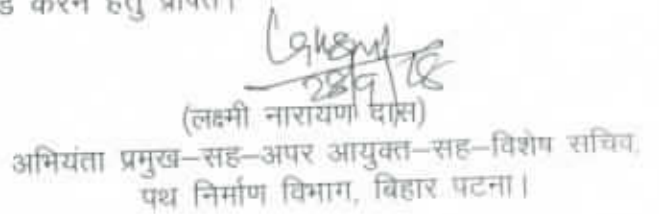 करने हेतु प्रेषित।
28/9/18
(लक्ष्मी नारायण दास)
अभियंता प्रमुख–सह–अपर आयुक्त–सह–विशेष सचिव,
पथ निर्माण विभाग, बिहार पटना।